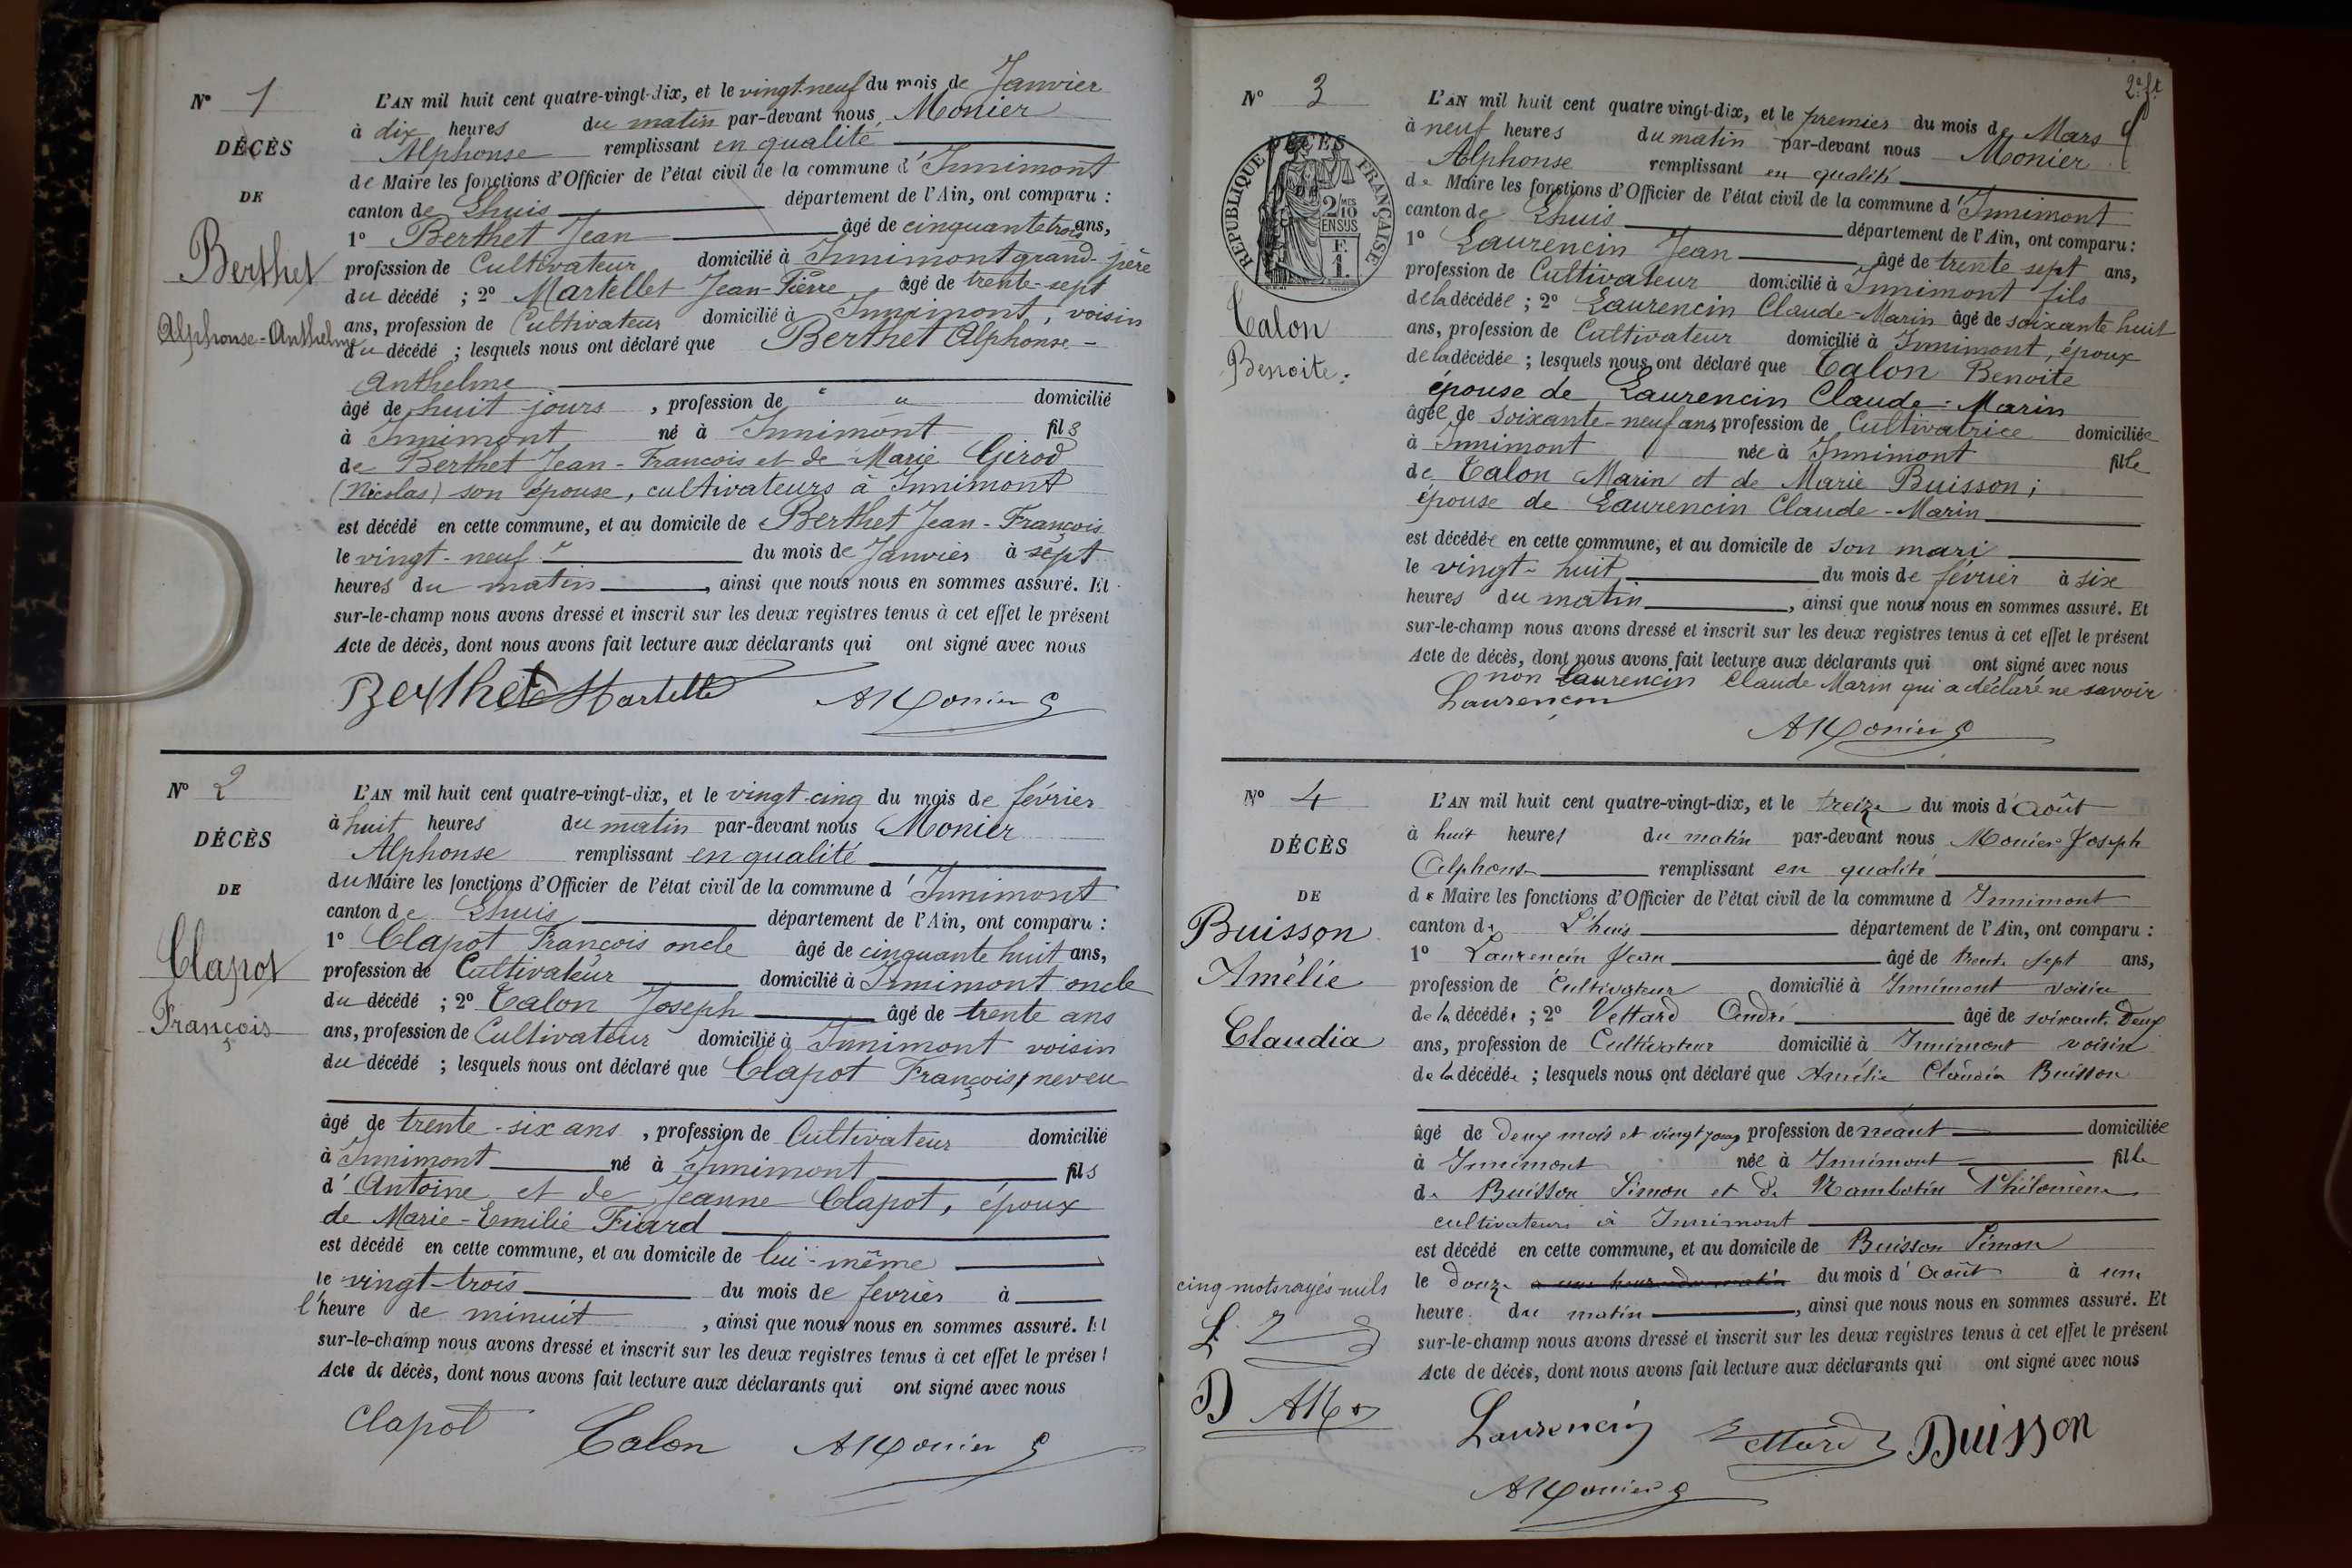 N° 1
DÉCÈS
DE
Berthet
Alphonse-Anthelme
L'AN mil huit cent quatre-vingt-dix, et le vingt-neuf du mois de Janvier
à dix heures du matin par-devant nous Monier
Alphonse remplissant en qualité
de Maire les fonctions d'Officier de l'état civil de la commune d'Innimont
canton de Lhuis département de l'Ain, ont comparu :
1° Berthet Jean âgé de cinquante trois ans,
profession de Cultivateur domicilié à Innimont grand-père
du décédé ; 2° Martellet Jean-Pierre âgé de trente-sept
ans, profession de Cultivateur domicilié à Innimont, voisin
du décédé ; lesquels nous ont déclaré que Berthet Alphonse-
Anthelme
âgé de huit jours , profession de " " domicilié
à Innimont né à Innimont fils
de Berthet Jean-Francois et de Marie Girod
(Nicolas) son épouse, cultivateurs à Innimont
est décédé en cette commune, et au domicile de Berthet Jean-François
le vingt-neuf du mois de Janvier à sept
heures du matin , ainsi que nous nous en sommes assuré. Et
sur-le-champ nous avons dressé et inscrit sur les deux registres tenus à cet effet le présent
Acte de décès, dont nous avons fait lecture aux déclarants qui ont signé avec nous
Berthet Martellet AMonier
N° 2
DÉCÈS
DE
Clapot
François
L'AN mil huit cent quatre-vingt-dix, et le vingt-cinq du mois de février
à huit heures du matin par-devant nous Monier
Alphonse remplissant en qualité
du Maire les fonctions d'Officier de l'état civil de la commune d'Innimont
canton de Lhuis département de l'Ain, ont comparu :
1° Clapot François oncle âgé de cinquante huit ans,
profession de Cultivateur domicilié à Innimont oncle
du décédé ; 2° Talon Joseph âgé de trente ans
ans, profession de Cultivateur domicilié à Innimont voisin
du décédé ; lesquels nous ont déclaré que Clapot François, neveu
âgé de trente-six ans , profession de Cultivateur domicilié
à Innimont né à Innimont fils
d'Antoine et de Jeanne Clapot, époux
de Marie-Emilie Fiard
est décédé en cette commune, et au domicile de lui-même
le vingt-trois du mois de février à
l'heure de minuit , ainsi que nous nous en sommes assuré. Et
sur-le-champ nous avons dressé et inscrit sur les deux registres tenus à cet effet le présent
Acte de décès, dont nous avons fait lecture aux déclarants qui ont signé avec nous
Clapot Talon AMonier
2e ft
N° 3
DÉCÈS
RÉPUBLIQUE FRANÇAISE
2/10 MES
EN SUS
F.
1.
Talon
Benoite.
L'AN mil huit cent quatre vingt-dix, et le premier du mois de Mars
à neuf heures du matin par-devant nous Monier
Alphonse remplissant en qualité
de Maire les fonctions d'Officier de l'état civil de la commune d'Innimont
canton de Lhuis département de l'Ain, ont comparu :
1° Laurencin Jean âgé de trente sept ans,
profession de Cultivateur domicilié à Innimont fils
de la décédée ; 2° Laurencin Claude-Marin âgé de soixante huit
ans, profession de Cultivateur domicilié à Innimont, époux
de la décédée ; lesquels nous ont déclaré que Talon Benoite
épouse de Laurencin Claude-Marin
âgée de soixante-neuf ans, profession de Cultivatrice domiciliée
à Innimont née à Innimont fille
de Talon Marin et de Marie Buisson ;
épouse de Laurencin Claude-Marin
est décédée en cette commune, et au domicile de son mari
le vingt-huit du mois de février à six
heures du matin , ainsi que nous nous en sommes assuré. Et
sur-le-champ nous avons dressé et inscrit sur les deux registres tenus à cet effet le présent
Acte de décès, dont nous avons fait lecture aux déclarants qui ont signé avec nous
non Laurencin Claude Marin qui a déclaré ne savoir
Laurencin
AMonier
N° 4
DÉCÈS
DE
Buisson
Amélie
Claudia
L'AN mil huit cent quatre-vingt-dix, et le treize du mois d'Août
à huit heures du matin par-devant nous Monier Joseph
Alphonse remplissant en qualité
de Maire les fonctions d'Officier de l'état civil de la commune d Innimont
canton de L'huis département de l'Ain, ont comparu :
1° Laurencin Jean âgé de trente sept ans,
profession de Cultivateur domicilié à Innimont voisin
de la décédée ; 2° Vettard André âgé de soixante Deux
ans, profession de Cultivateur domicilié à Innimont voisin
de la décédée ; lesquels nous ont déclaré que Amélie Claudia Buisson
âgé de Deux mois et vingt jours profession de néant domiciliée
à Innimont née à Innimont fille
de Buisson Simon et de Nambotin Philomène
cultivateurs à Innimont
est décédé en cette commune, et au domicile de Buisson Simon
le douze a une heure du matin du mois d'Août à une
heure du matin , ainsi que nous nous en sommes assuré. Et
sur-le-champ nous avons dressé et inscrit sur les deux registres tenus à cet effet le présent
Acte de décès, dont nous avons fait lecture aux déclarants qui ont signé avec nous
cinq mots rayés nuls
Laurencin Vettard Buisson
AMonier